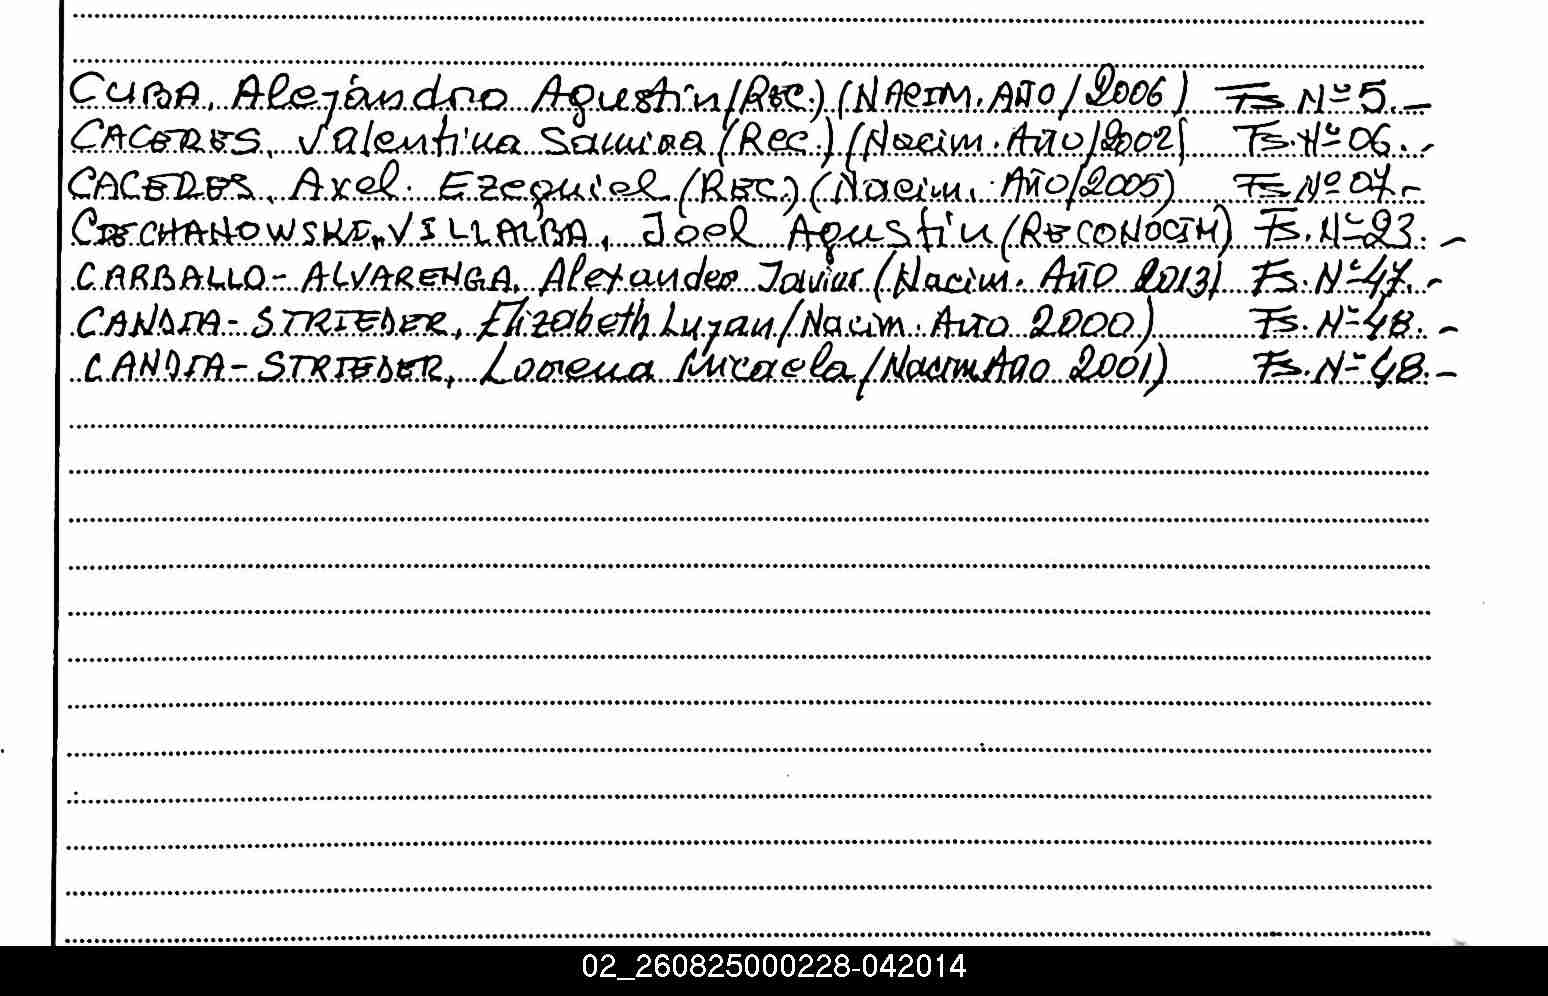 CUBA, Alejandro Agustín (Rec.) (NACIM. AÑO/2006) Fs Nº 5.-
CACERES, Valentina Samira (Rec.) (Nacim. Año/2002) Fs. Nº 06.-
CACERES, Axel Ezequiel (Rec.) (Nacim. Año/2005) Fs Nº 07.-
CIECHANOWSKI-VILLALBA, Joel Agustín (RECONOCIM) Fs. Nº 23.-
CARBALLO-ALVARENGA, Alexander Javier (Nacim. Año 2013) Fs. Nº 47.-
CANDIA-STRIEDER, Elizabeth Lujan (Nacim. Año 2000) Fs. Nº 48.-
CANDIA-STRIEDER, Lorena Micaela (Nacim Año 2001) Fs. Nº 48.-
02_260825000228-042014